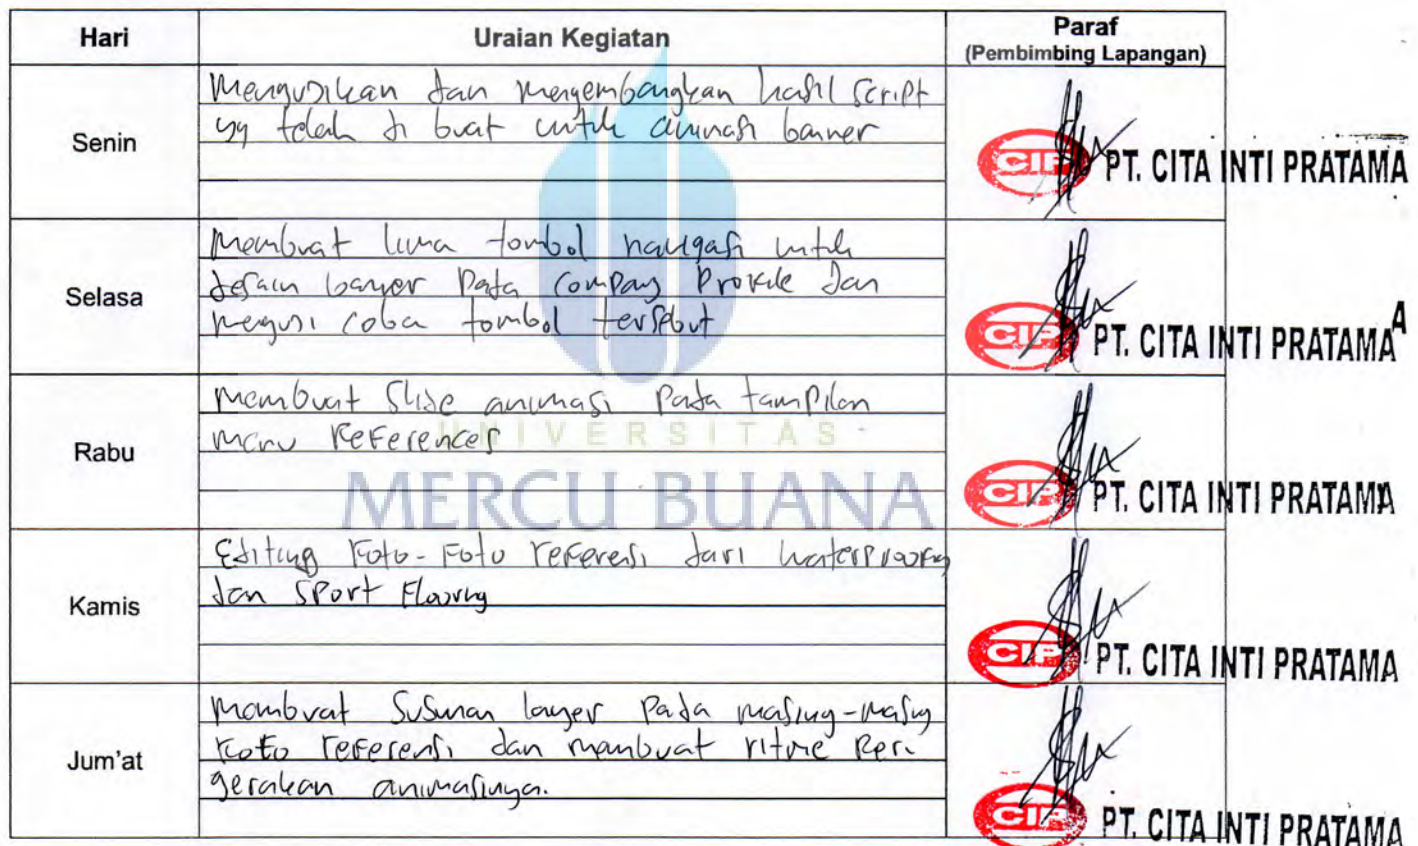 Hari Uraian Kegiatan Paraf
(Pembimbing Lapangan)
Senin
Mengusikan dan mengembangkan hasil script
yg telah di buat untuk animasi banner
CIP PT. CITA INTI PRATAMA
Selasa
Membuat lima tombol navigasi untuk
desain banner pada company Profile dan
menguji coba tombol tersebut
CIP PT. CITA INTI PRATAMA A
Rabu
Membuat Slide animasi pada tampilan
menu References
CIP PT. CITA INTI PRATAMA
UNIVERSITAS
MERCU BUANA
Kamis
Editing Foto-Foto referensi dari waterproofing
dan Sport Flooring
CIP PT. CITA INTI PRATAMA
Jum'at
Membuat Susunan layer pada masing-masing
Foto referensi dan membuat ritme per
gerakan animasinya.
CIP PT. CITA INTI PRATAMA